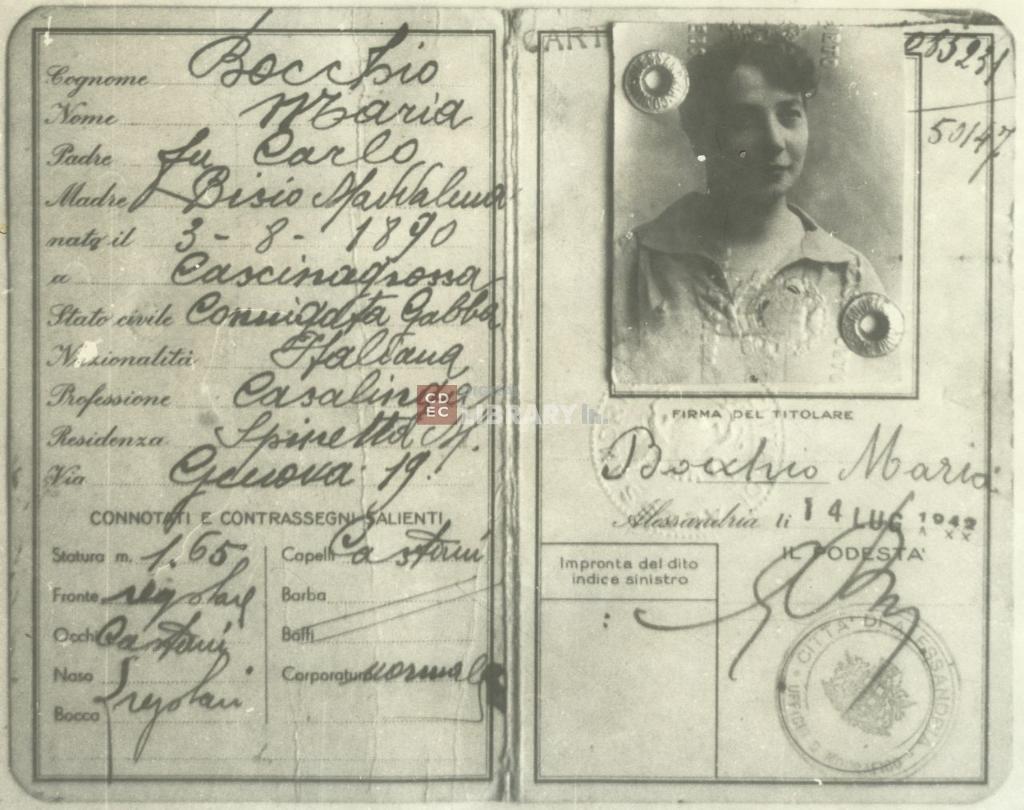 Cognome Bocchio
Nome Maria
Padre fu Carlo
Madre Bisio Maddalena
nato il 3 - 8 - 1890
a Cascinagrossa
Stato civile Coniugata Gabba
Nazionalità Italiana
Professione Casalinga
Residenza Spinetta M.
Via Genova 19.
CONNOTATI E CONTRASSEGNI SALIENTI
Statura m. 1.65
Fronte regolare
Occhi Castani
Naso
Bocca regolari
Capelli Castani
Barba
Baffi
Corporatura normale
CART
083231
50147
CDEC
LIBRARY
FIRMA DEL TITOLARE
Bocchio Maria
Alessandria li 14 LUG 1942
XX
IL PODESTA'
Impronta del dito
indice sinistro
CITTA' DI ALESSANDRIA